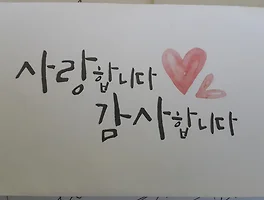 사랑합니다
감사합니다